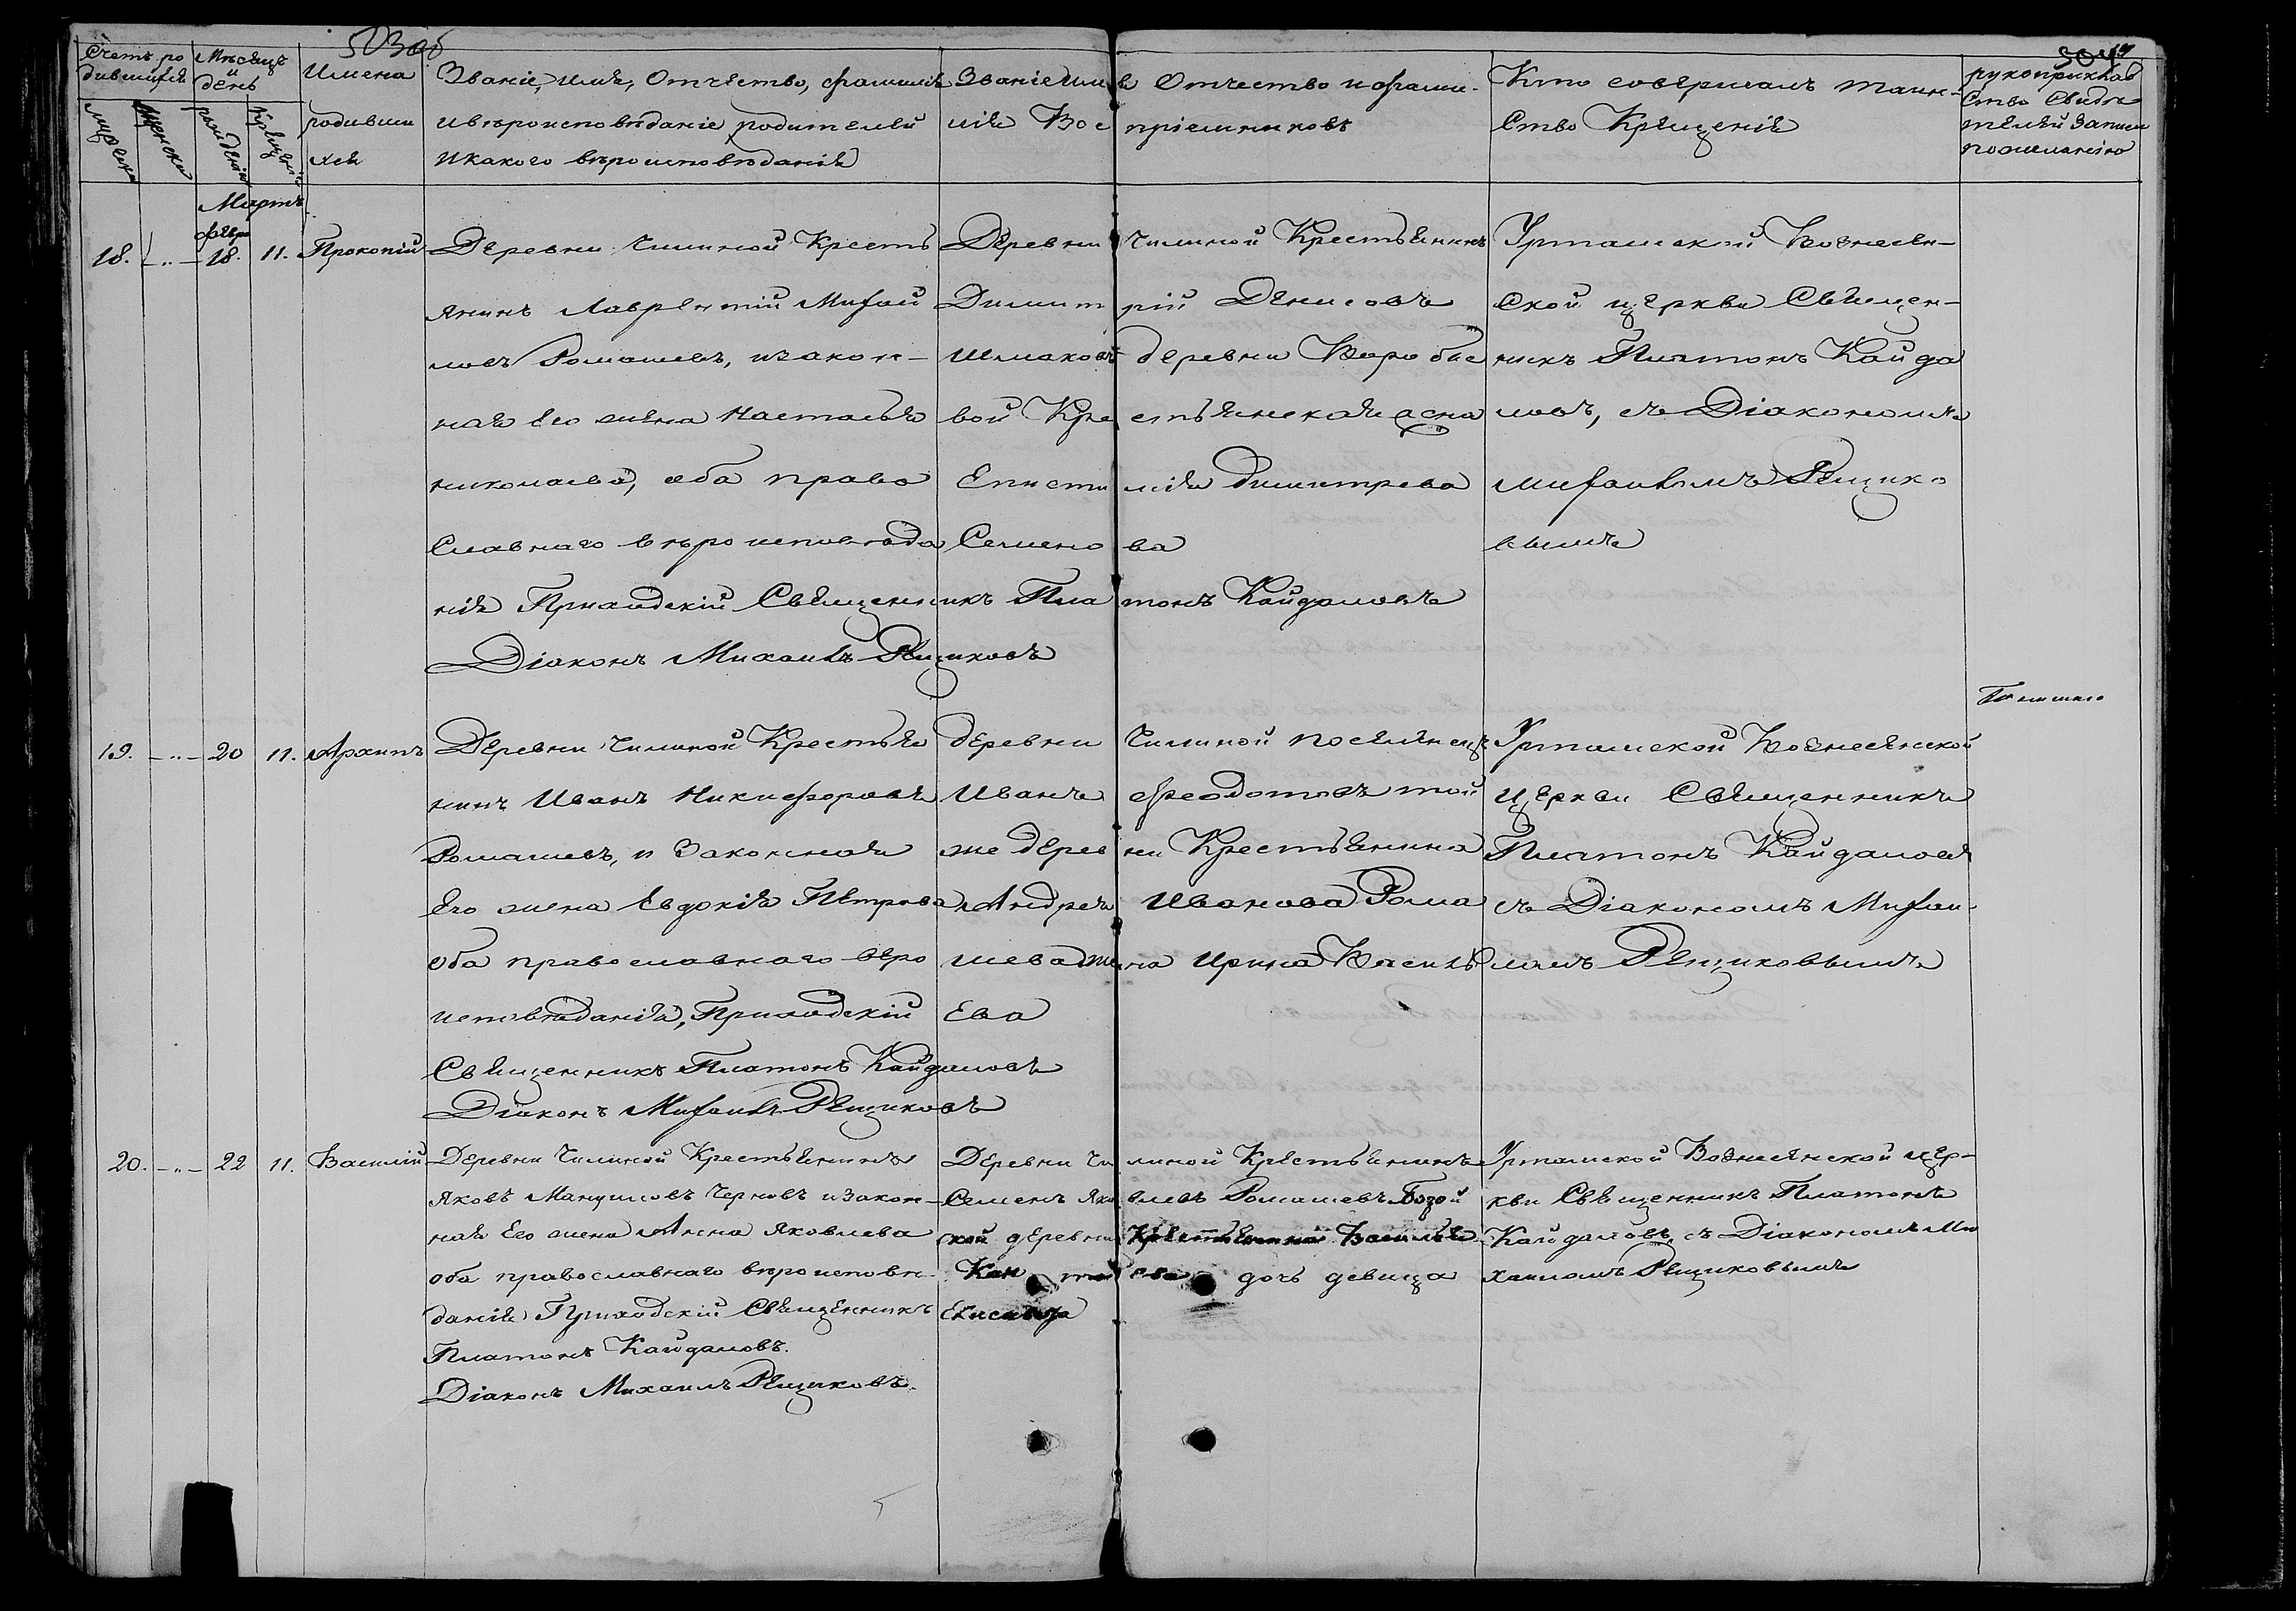 503об
504
19
Счетъ ро
дившихся
Мѣсяцъ
и
день
Имена
родивши
хся
Званіе, имя, Отчество, фамилія
и вѣроисповѣданіе родителей
и какого вѣроисповѣданія
Званіе имя Отчество и фами-
лія Воспріемниковъ
Кто совершалъ таин-
ство Крещенія
рукоприклад
ство Свидѣ
телей записи
по желанію
мужеска
женска
рожденія
крещенія
Мартъ
февр
18. -„- 18. 11. Прокопій
Деревни Чилиной Кресть
янинъ Лаврентій Михай
ловъ Ромашевъ, и закон-
ная его жена Настасья
Николаева, оба право
славнаго вѣроисповѣда
нія Приходскій Священникъ Платонъ Кайдаловъ
Діаконъ Михаилъ Рещиковъ
Деревни Чилиной Крестьянинъ
Димитрій Денисовъ
Шмаковъ деревни Воробье
вой Крестьянская жена
Епистимія Димитрева
Семенова
Уртамской Вознесен-
ской церкви Священ-
никъ Платонъ Кайда
ловъ, съ Діакономъ
Михаиломъ Рещико
вымъ
19. -„- 20 11. Архипъ
Деревни Чилиной Крестья
нинъ Иванъ Никифоровъ
Ромашевъ, и Законная
Его жена Евдокія Петрова
оба православнаго веро
исповѣданія, Приходскій
Священникъ Платонъ Кайдаловъ
Діаконъ Михаилъ Рещиковъ
деревни Чилиной поселенецъ
Иванъ Феодотовъ той
же дерев ни Крестьянина
Андрея Иванова Рома
шева жена Ирина Василь
Ева
Уртамской Вознесенской
церкви Священникъ
Платонъ Кайдаловъ
съ Діакономъ Михаи
ломъ Рещиковымъ
20. -„- 22 11. Василій
Деревни Чилиной Крестьянинъ
Яковъ Чорновъ и закон-
ная Его жена Анна Яковлева
оба православнаго вѣроисповѣ-
данія Приходскій Священникъ
Платонъ Кайдаловъ.
Діаконъ Михаилъ Рещиковъ.
Деревни Чилиной Крестьянинъ
Семенъ Яковлевъ Ромашевъ
ской деревни Крестьянина Василья
дочь девица
Уртамской Вознесенской цер-
кви Священникъ Платонъ
Кайдаловъ, съ Діакономъ Ми
хаиломъ Рещиковымъ